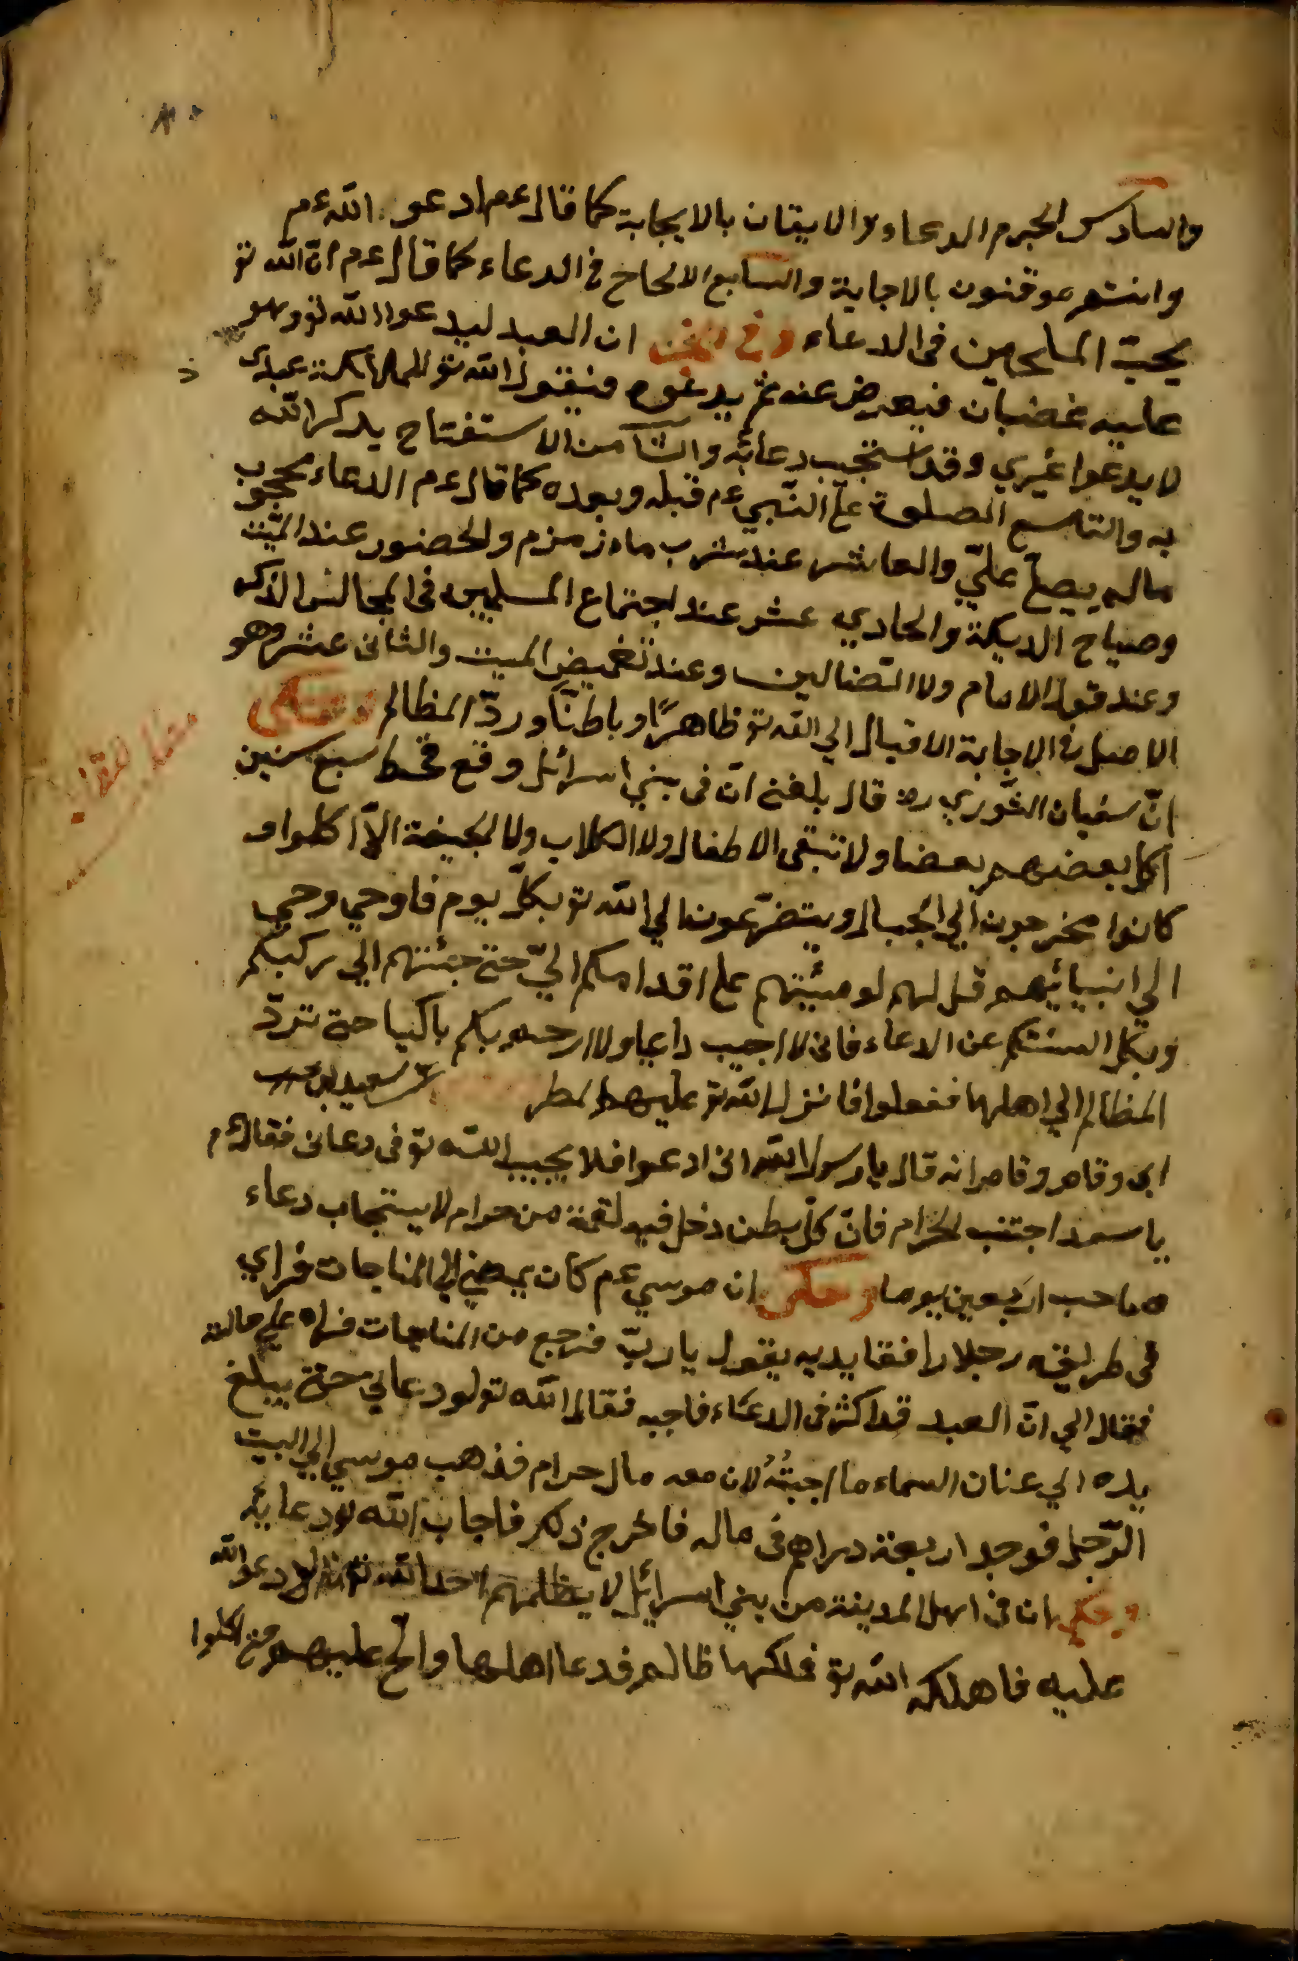 والسادس الجزم الدعاء والايقان بالايجابة كما قال عم ادعو الله عم
وانتم موقنون بالاجابة والسابع الالحاح في الدعاء كما قال عم ان الله تع
يحبّ الملحين في الدعاء وفي ان العبد ليدعوا الله تع وهو
عليه غضبان فيعرض عنه ثم يدعوه فيقول الله تع للملائكة عبدى
لا يدعوا غيري وقد استجيب دعائه والثامن الاستفتاح يذكر الله
به والتاسع الصلوة على النّبي عم قبله وبعده كما قال عم الدعاء محجوب
ماله يصلّ عليّ والعاشر عند شرب ماء زمزم والحضور عند الميّت
وصياح الديكة والحادي عشر عند اجتماع المسلمين في المجالس الذكر
وعند قول الامام ولا الضّالين وعند تغميض الميت والثاني عشر وهو
الاصل في الاجابة الاقبال الي الله تع ظاهرًا وباطنًا وردّ المظالم وحكى
انّ سفيان الثّوري رح قال بلغني انّ في بني اسرائل وقع قحط سبع سنين
اكل بعضهم بعضا ولا تبقى الاطفال ولا الكلاب ولا الجيفة الاّ اكلوا و
كانوا يخرجون الي الجبال ويتضرّعون الي الله تع بكلّ يوم فاوحي وحي
الي انبيائهم قل لهم لو مشيتم على اقدامكم اليّ حتى جئتهم الي ركبكم
وبكل السنتكم عن الدعاء فاني لا اجيب داعيا ولا ارحم بكم باكيا حتى تردّ
المظالم الي اهلها ففعلوا فانزل الله تع عليهم المطر سعيد بن
ابى وقاص وقاص انه قال يا رسول الله اني ادعوا فلا يجيب الله تع في دعائى فقال عم
يا سعد اجتنب الحرام فانّ كلّ بطن دخل فيه لقمة من حرام لا يستجاب دعاء
صاحب اربعين يوما وحكى ان موسي عم كان يمضي الي المناجات فراي
في طريقه رجلا رافعا يديه يقول يا ربّ فرجع من المناجات فراه على حاله
فقال الهي انّ العبد قد اكثر في الدعاء فاجبه فقال الله تع لو دعاني حتى يبلغ
يده الي عنان السماء ما اجبتُهُ لان معه مال حرام فذهب موسي الي البيت
الرّجل فوجد اربعة دراهم في ماله فاخرج ذلك فاجاب الله تع دعائه
وحكي ان في اهل المدينة من بني اسرائل لا يظلمهم احد الله دعو الله
عليه فاهلكه الله تع فملكها ظالم فدعا اهلها والحّ عليهم حتى اكلوا